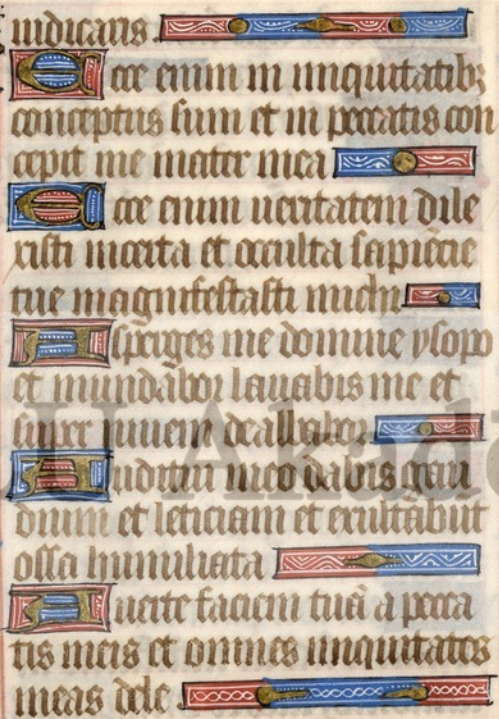 iudicaris.
Ecce enim in iniquitatibz
conceptus sum et in peccatis con
cepit me mater mea
Ecce enim ueritatem dile
xisti incerta et occulta sapiẽtie
tue magnifestasti michi
Asperges me domine ysopo
et mundabor lauabis me et
super niuem dealbabor
Auditui meo dabis gau
dium et leticiam et exultabũt
ossa humiliata
Auerte faciem tuã a pecca
tis meis et omnes iniquitates
meas dele.